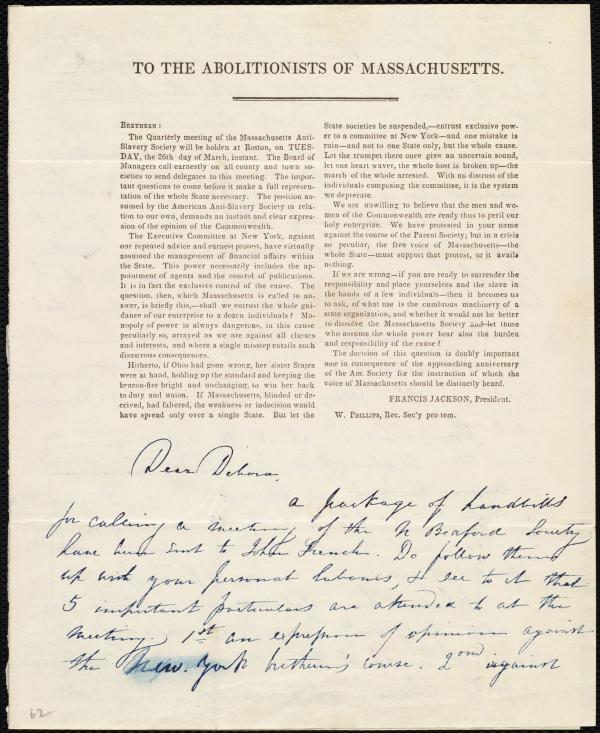 TO THE ABOLITIONISTS OF MASSACHUSETTS.
BRETHREN:
The Quarterly meeting of the Massachusetts Anti-
Slavery Society will be holden at Boston, on TUES-
DAY, the 26th day of March, instant. The Board of
Managers call earnestly on all county and town so-
cieties to send delegates to this meeting. The impor-
tant questions to come before it make a full represen-
tation of the whole State necessary. The position as-
sumed by the American Anti-Slavery Society in rela-
tion to our own, demands an instant and clear expres-
sion of the opinion of the Commonwealth.
The Executive Committee at New York, against
our repeated advice and earnest protest, have virtually
assumed the management of financial affairs within
the State. This power necessarily includes the ap-
pointment of agents and the control of publications.
It is in fact the exclusive control of the cause. The
question, then, which Massachusetts is called to an-
swer, is briefly this,—shall we entrust the whole gui-
dance of our enterprise to a dozen individuals? Mo-
nopoly of power is always dangerous, in this cause
peculiarly so, arrayed as we are against all classes
and interests, and where a single misstep entails such
disastrous consequences.
Hitherto, if Ohio had gone wrong, her sister States
were at hand, holding up the standard and keeping the
beacon-fire bright and unchanging, to win her back
to duty and union. If Massachusetts, blinded or de-
ceived, had faltered, the weakness or indecision would
have spread only over a single State. But let the
State societies be suspended,—entrust exclusive pow-
er to a committee at New York—and one mistake is
ruin—and not to one State only, but the whole cause.
Let the trumpet there once give an uncertain sound,
let one heart waver, the whole host is broken up—the
march of the whole arrested. With no distrust of the
individuals composing the committee, it is the system
we deprecate.
We are unwilling to believe that the men and wo-
men of the Commonwealth are ready thus to peril our
holy enterprize. We have protested in your name
against the course of the Parent Society; but in a crisis
so peculiar, the free voice of Massachusetts—the
whole State—must support that protest, or it avails
nothing.
If we are wrong—if you are ready to surrender the
responsibility and place yourselves and the slave in
the hands of a few individuals—then it becomes us
to ask, of what use is the cumbrous machinery of a
state organization, and whether it would not be better
to dissolve the Massachusetts Society and let those
who assume the whole power bear also the burden
and responsibility of the cause?
The decision of this question is doubly important
now in consequence of the approaching anniversary
of the Am. Society for the instruction of which the
voice of Massachusetts should be distinctly heard.
FRANCIS JACKSON, President.
W. PHILLIPS, Rec. Sec'y pro tem.
Dear Debora,
a package of handbills
for calling a meeting of the N Beaford Society
have been sent to John French. Do follow them
up with your personal labours, & see to it that
5 important particulars are attended to at the
meeting. 1st an expression of opinion against
the New-York brethren's course. 2ond against
62